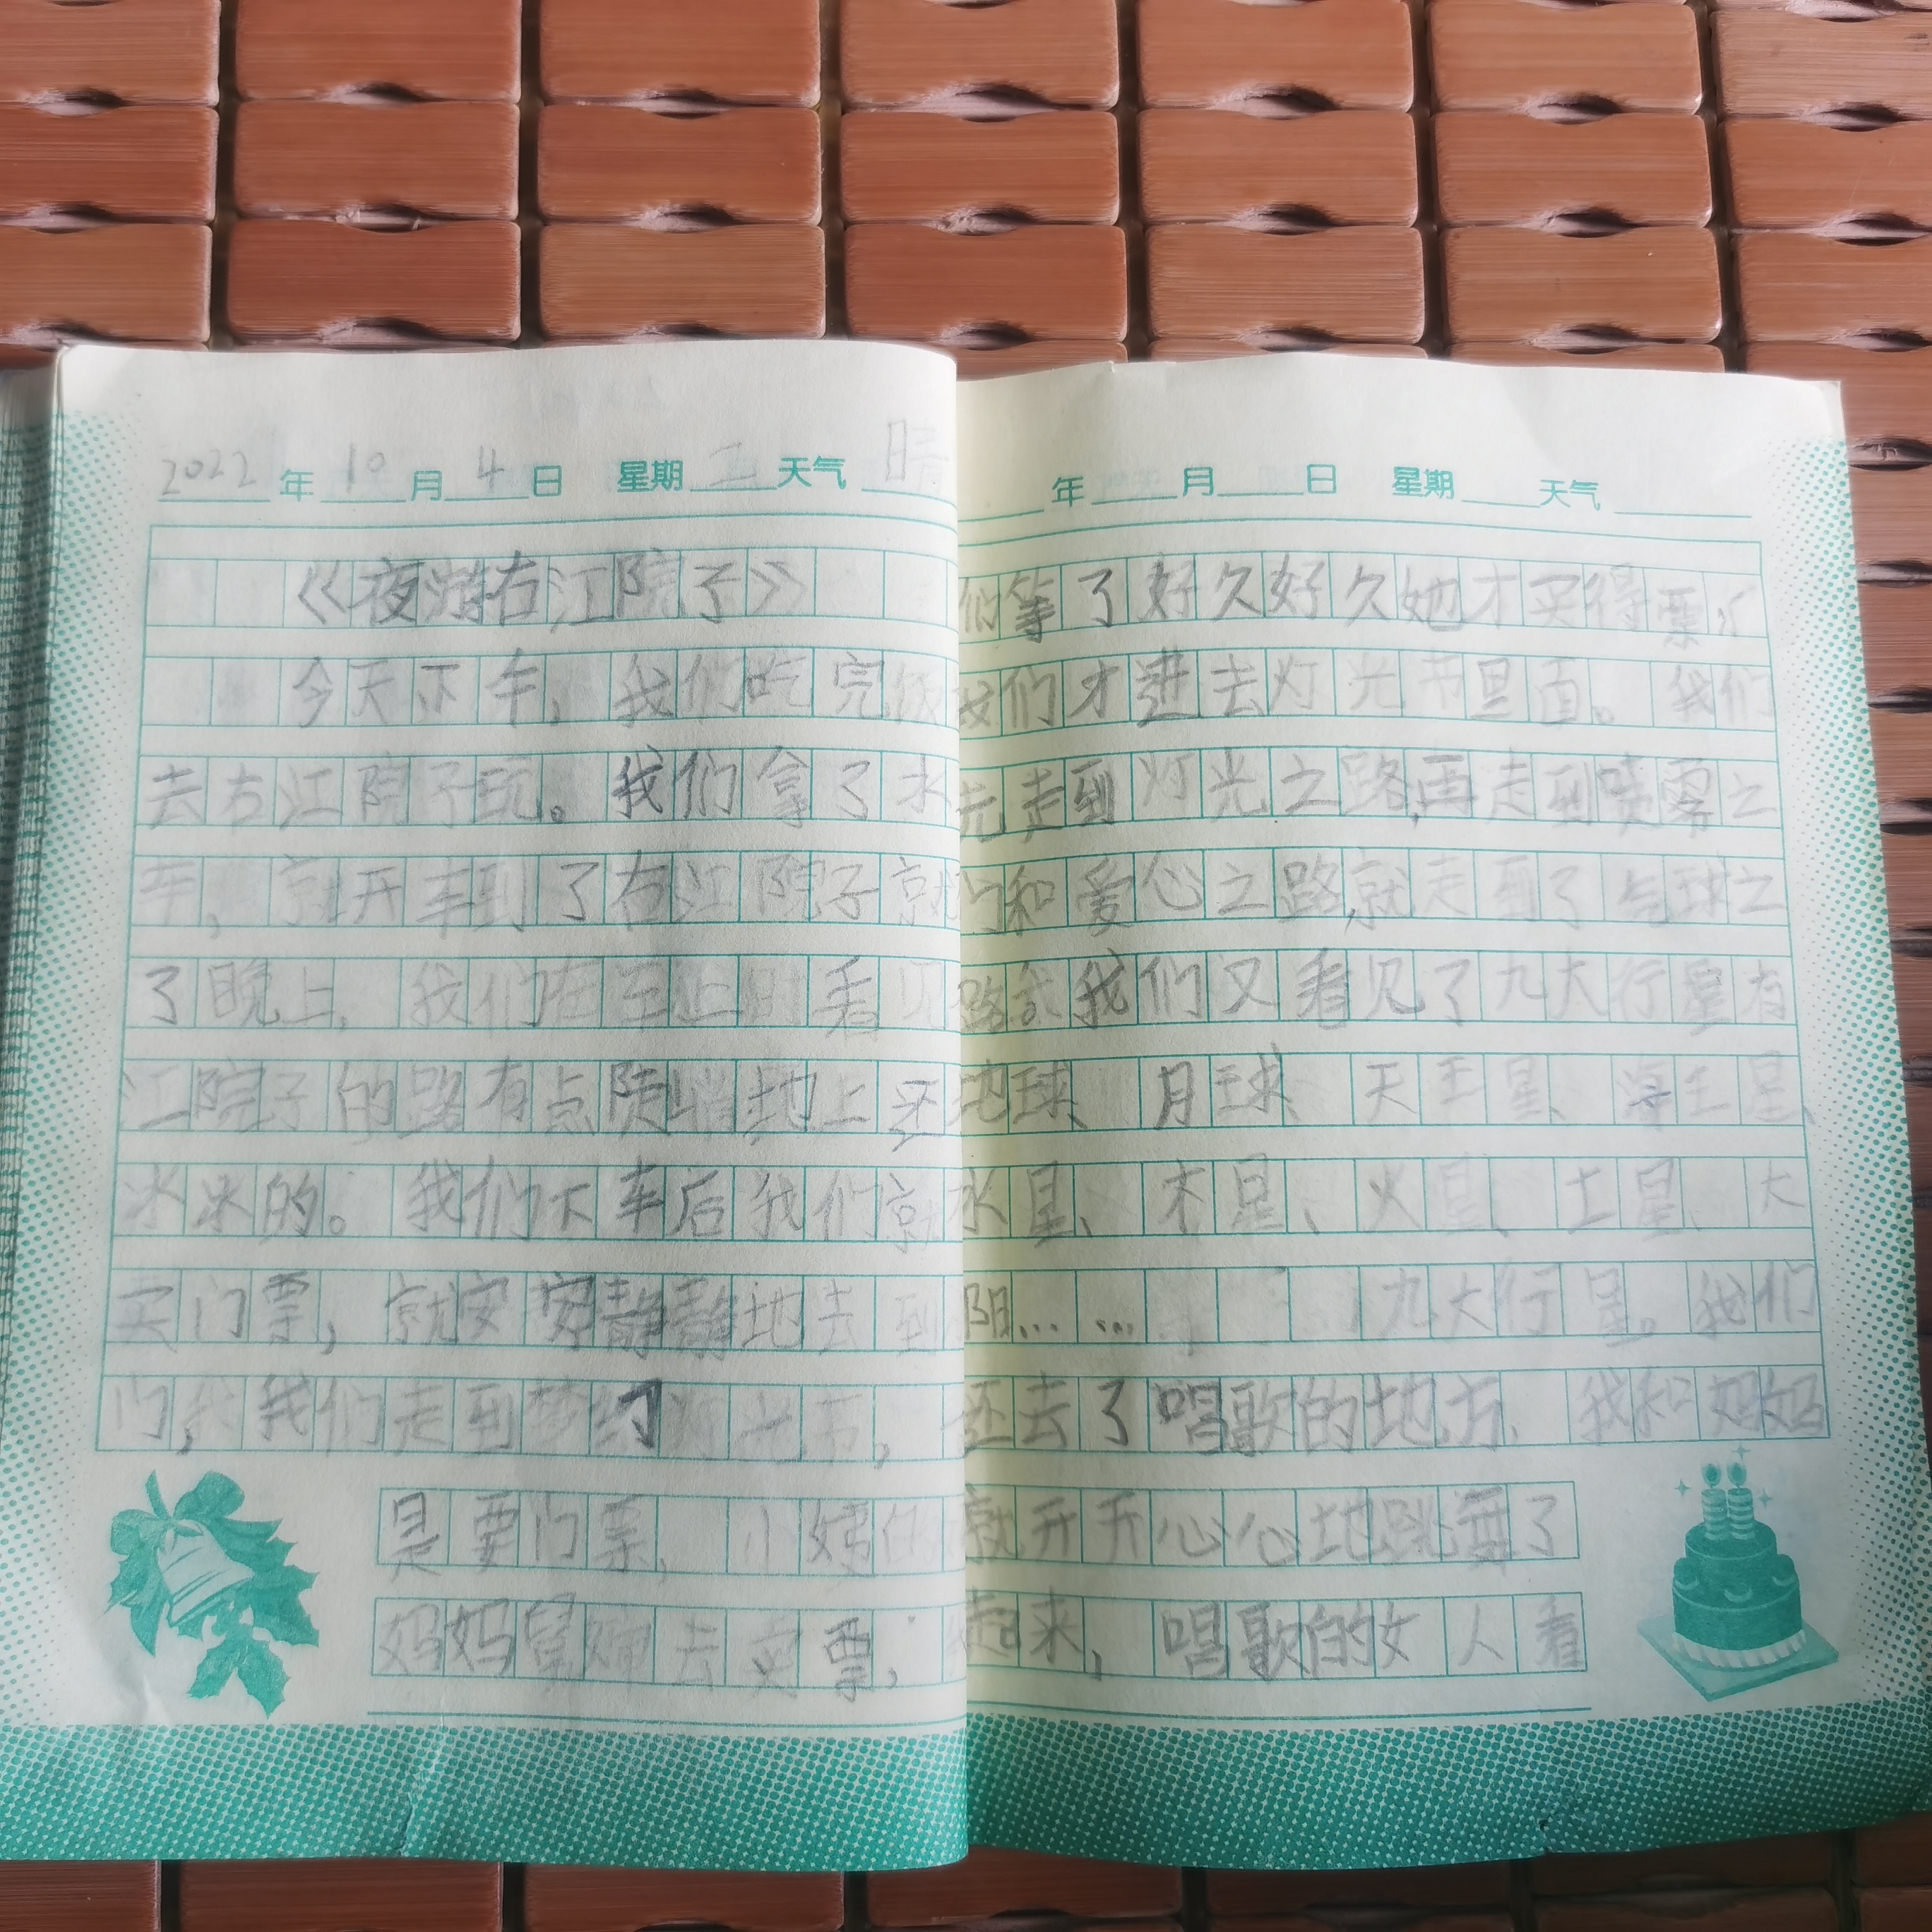 2022年10月4日 星期二天气晴
《夜游右江院子》
今天下午，我们吃完饭
去右江院子玩。我们拿了水
车，就开车到了右江院子就
了晚上，我们在车上看见
江院子的路有点陡 地上还
冰冰的。我们下车后我们就
买门票，就安安静静地去到
门，我们走到梦幻灯之节，
是要门票，小姨
妈妈舅娘去买票，
年 月 日 星期 天气
们等了好久好久她才买得票，
我们才进去灯光节里面。我们
先走到灯光之路，再走到喷雾之
和爱心之路，就走到了气球之
路 我们又看见了九大行星有
地球、月球、天王星、海王星、
水星、木星、火星、土星、太
阳……九大行星。我们
还去了唱歌的地方、我和妈妈
就开开心心地跳舞了
起来，唱歌的女人看